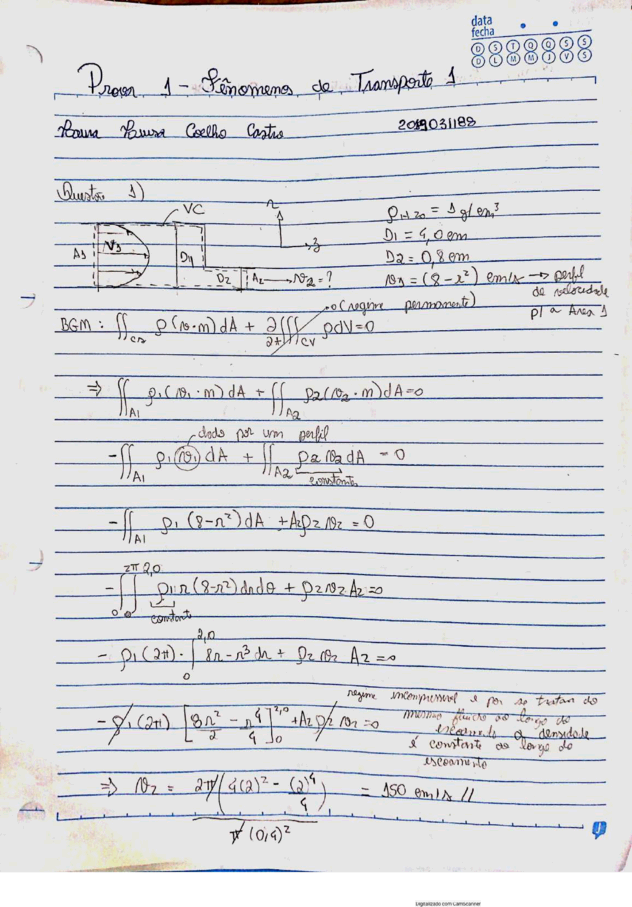 data
fecha
D S T Q Q S S
D L M M J V S
Prova 1 - Fênomenos de Transporte 1
Coelho Castro 2019031188
Questão 1)
VC
r
z
A1 V1 D1 D2 A2 → v2 = ?
ρH2O = 1 g/cm³
D1 = 4,0 cm
D2 = 0,8 cm
v1 = (8 - r²) cm/s → perfil
de velocidade
p/ a Area 1
0 (regime permanente)
BGM: ∬cs ρ(v·n)dA + ∂/∂t ∭cv ρdV = 0
⇒ ∬A1 ρ1(v1·n)dA + ∬A2 ρ2(v2·n)dA = 0
dado por um perfil
-∬A1 ρ1(v1)dA + ∬A2 ρ2 v2 dA = 0
constante
-∬A1 ρ1(8-r²)dA + A2ρ2v2 = 0
-∫0^2π ∫0^2,0 ρ1 r(8-r²)drdθ + ρ2v2A2 = 0
constante
- ρ1(2π)·∫0^2,0 8r - r³ dr + ρ2v2 A2 = 0
- ρ1(2π) [8r²/2 - r⁴/4]0^2,0 + A2 ρ2 v2 = 0
regime incompressível e por se tratar do
mesmo fluido ao longo do
escoamento a densidade
é constante ao longo do
escoamento
⇒ v2 = 2π(4(2)² - (2)⁴/4) / π(0,4)² = 150 cm/s //
Digitalizado com CamScanner